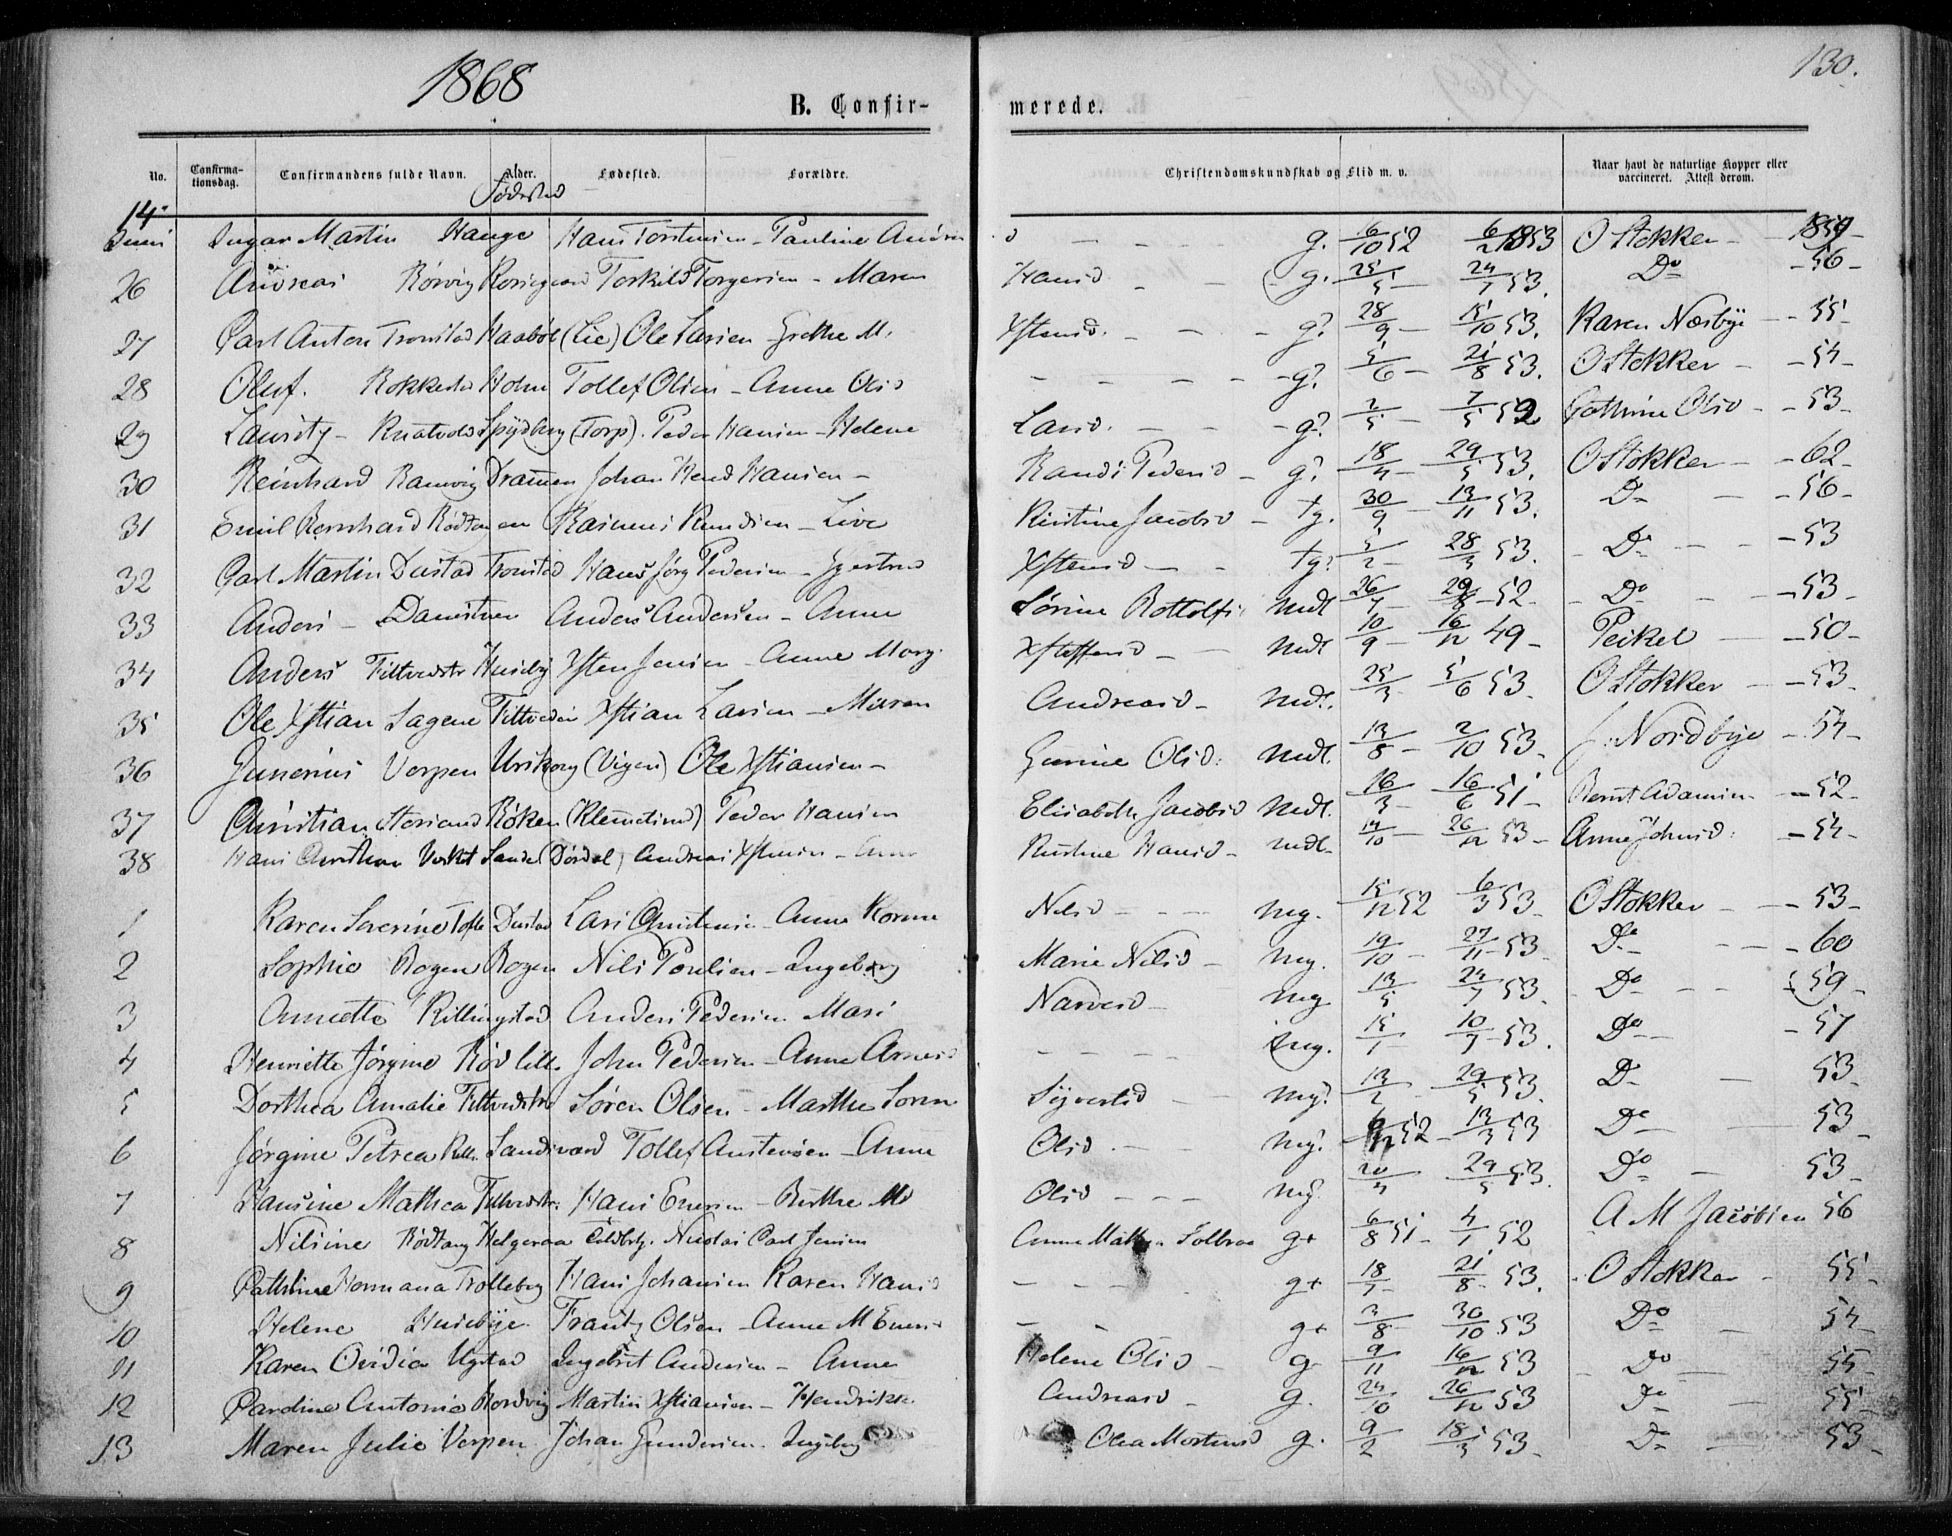 1868
130.
B. Confir-
merede.
No.
Confirma-
tionsdag.
Confirmandens fulde Navn.
Alder.
Fødested.
Forældre.
Christendomskundskab og Flid m. v.
Naar havt de naturlige Kopper eller
vaccineret. Attest derom.
Fødested
14.
Juni Martin Hauge Hans Torstensen - Pauline Andrea d - - - g. 6/10 52 6/2 1853 O Stokker -
26 Andreas Rörvig Torkild Torgersen - Maren Hansd - - g. 25/5 - 24/7 53. Do - 56 -
27 Carl Anton Tronstad Haabøl (Lie) Ole Larsen - Grethe M. Xstensd. - - g? 28/9 - 15/10 53. Karen Næsbye - 55 -
28 Oluf. Holm Tollef Olsen - Anne Olsd - - - - g? 5/6 - 21/8 53. O Stokker - 54 -
29 Lauritz - Spydberg (Torp). Peder Hansen - Helene Larsd. - - g? 2/5 - 7/5 Cathrine Olsd - 53 -
30 Reinhard Ramvig Drammen Johan Hansen - Randi Pedersd - g? 18/4 - 29/5 53. O Stokker - 62 -
31 Emil Bernhard Rödtangen Rasmus - Live Kirstine Jacobsd - tg. 30/9 - 13/11 53. Do - 56 -
32 Carl Martin Dustad Tronstad Hans Jörg Pedersen - Gjertrud Xstensd - - tg? 5/2 - 28/3 53. - Do - - 53
33 Anders - Anders Andersen - Anne Sörine mdt 26/7 - 29/8 - 52 - Do - - 53 -
34 Anders Tiltvedstr Husebÿ Xsten Jensen - Anne Marg. Xstoffersd - - mdt 10/9 - 16/12 49 - Peikel - 50 -
35 Ole Xstian Sagene Tiltvedein Xstian Larsen - Maren Andreasd - mdt. 25/3 5/6 53 - O Stokker - 53 -
36 Gunerius Verpen Urskoug Ole Xstiansen - Gurine Olsd: mdt. 13/8 - 2/10 53 - Nordbye - 54 -
37 Christian Röken (Klemetsrud) Peder Hansen Elisabeth Jacobsd mdt. 16/3 - 16/6 51 - Bernt Adamsen - 52 -
38 Hans Christian Sande Andreas Xstensen - Anne Kirstine Hansd - mdt - 14/10 - 26/12 53 - Anne Johnsd: - 54 -
1 Karen Severine Tofte Dustad Lars Christensen - Anne Korine Nilsd - - - mg. 15/12 52 6/3 53 - O Stokker - 53 -
2 Sophie Bogen Bogen Nils Poulsen - Ingeborg Marie Nilsd - mg. 19/10 - 27/11 - 53 - Do - - 60
3 Annette Killingstad Anders Pedersen Mari Narvesd - mg 13/5 24/7 53 - Do - - 59 -
4 Henriette Jörgine Röd lille. John Pedersen - Anne Arnesd - - - - mg. 15/1 10/7 - 53. Do - 57
5 Dorthea Amalie Tiltvedstr Sören Olsen - Marthe Soren Syversd - mg? 13/2 - 29/5 53. Do - 53
6 Jörgine Petrea Sandsværd Tollef Austensen - Anne Olsd - - mg? 52 - 13/3 53 Do - 53
7 Hansine Mathea Tiltvedstr: Hans Evensen - Berthe M Olsd - - - mg. 20/4 29/5 53. Do - 53 -
8 Nilsine Rödtang Helgeraa Nicolai Carl Jensen Anne g+ 6/8 51 - 4/1 52 A M Jacobsen 56
9 Cathrine Hermana Trolleberg Hans Johansen Karen Hansd - - - g+ 18/7 - 21/8 - 53. O Stokker - 55 -
10 Helene Husebye. Frantz Olsen - Anne M Evensd - - g+ 3/8 - 30/10 53 Do - 54 -
11 Karen Ovidia Ugstad Ingebret Andersen - Anne Helene Olsd - g - 9/11 16/12 53 Do - 55 -
12 Cardine Antonie Nordvig Martin Xstiansen - Hendrikke Andreasd - g. 24/10 26/12 53 Do - 55 -
13 Maren Julie Verpen. Johan Gundersen. Ingeborg Olea Mortensd g. 9/2 18/3 53 - Do - 53 -